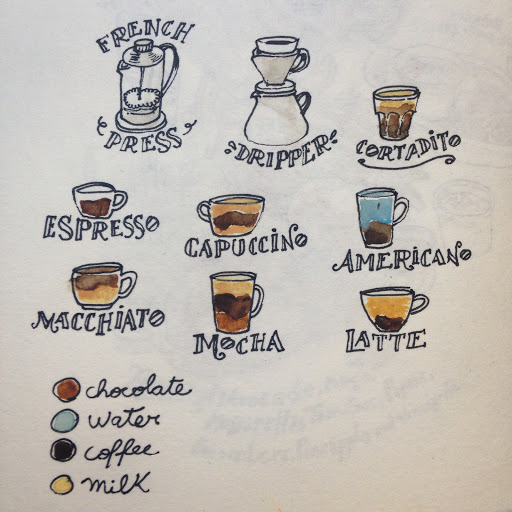 FRENCH
PRESS
DRIPPER
CORTADITO
ESPRESSO
CAPUCCINO
AMERICANO
MACCHIATO
MOCHA
LATTE
chocolate
water
coffee
milk